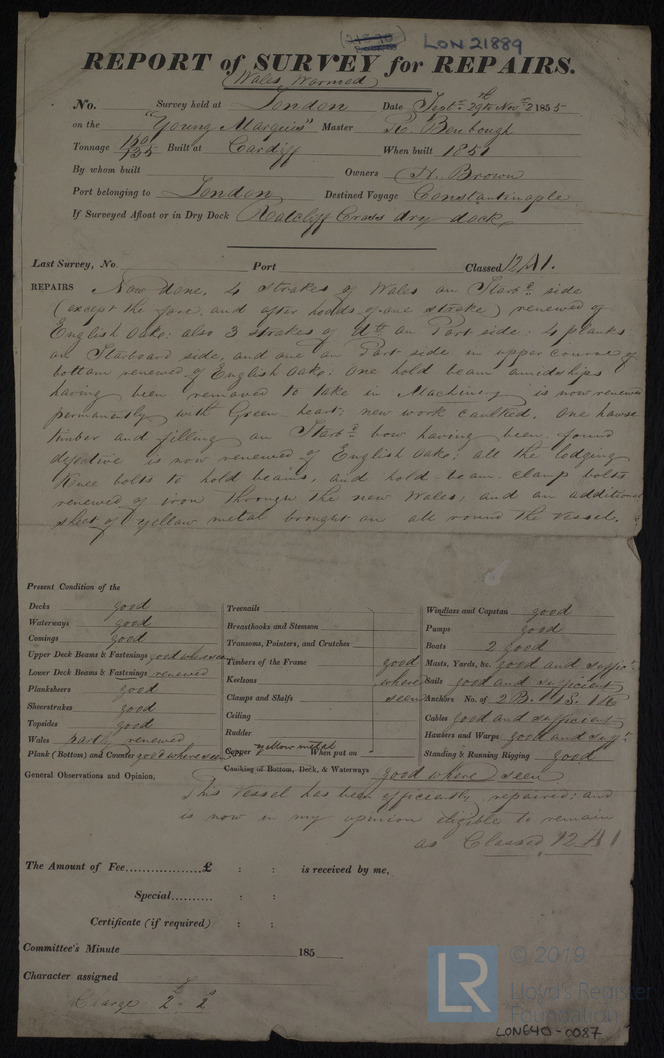 LON 21889
REPORT of SURVEY for REPAIRS.
(Wales Wormed)
No. Survey held at London Date Sept. 29th Nov. 2 1855
on the "Young Marquis" Master
Tonnage 735 Built at Cardiff When built 1851
By whom built Owners H. Brown
Port belonging to London Destined Voyage Constantinople
If Surveyed Afloat or in Dry Dock Ratcliff Cross dry dock
Last Survey, No. Port Classed 12 A1.
REPAIRS Now done, 4 strakes of Wales on Starbd. side
(except the fore and after hoods of one strake) renewed of
English Oake: also 3 strakes of do. on Port side: 4 planks
on Starboard side, and one on Port side in upper course of
bottom renewed of English Oake: One hold beam amidships
having been removed to take in Machinery is now renewed
permanently with Green heart: new work caulked. One hawse
timber and filling on Starbd. bow having been found
defective is now renewed of English Oake: all the lodging
Knee bolts to hold beams, and hold beam clamp bolts
renewed of iron through the new Wales, and an additional
sheet of yellow metal brought on all round the Vessel.
Present Condition of the
Decks good
Waterways good
Comings good
Upper Deck Beams & Fastenings good where seen
Lower Deck Beams & Fastenings renewed
Planksheers good
Sheerstrakes good
Topsides good
Wales partly renewed
Plank (Bottom) and Counter good where seen
Treenails
Breasthooks and Stemson
Transoms, Pointers, and Crutches
Timbers of the Frame good
Keelsons where
Clamps and Shelfs seen
Ceiling
Rudder
Copper yellow metal When put on
Caulking of Bottom, Deck, & Waterways good where seen
Windlass and Capstan good
Pumps good
Boats 2 good
Masts, Yards, &c. good and suffict.
Sails good and sufficient
Anchors No. of 2 B. 1 S. 1 K
Cables good and sufficient
Hawsers and Warps good and suff.
Standing & Running Rigging good
General Observations and Opinion, This Vessel has been efficiently repaired; and
is now in my opinion eligible to remain
as Classed 12 A1
The Amount of Fee............... £ : : is received by me,
Special.......... : :
Certificate (if required) : :
Committee's Minute 185
Character assigned
Charge £2 - 2
LR © 2019
Lloyd's Register
Foundation
LON640-0087